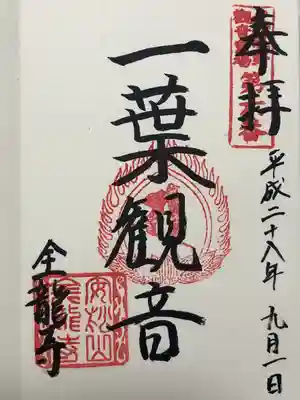 奉拝
平成二十八年 九月一日
一葉観音
全龍寺